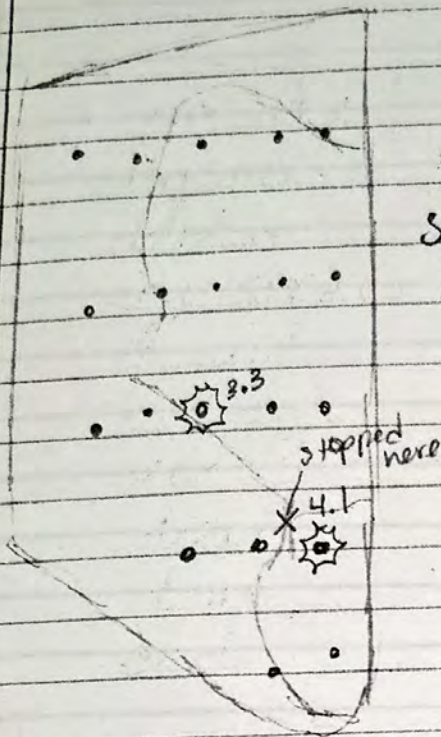 S
3.3
stopped
here
4.1